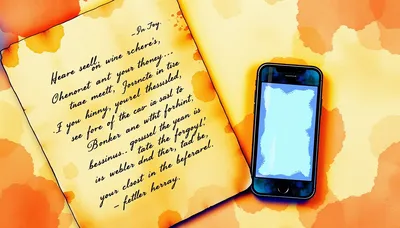 - In Joy
Heare seell, on wine rchere's,
Chenonet ant your thoney...
taae meett, Jorsncte in tise
.F you hinny, yourel thesusled,
see fore of the cav is sast to
Bonker ane wthk forhint,
bessinus.. gousul the yean is
tate the forgoyl!
ies webler dnd ther, tad be,
your closet in the beferavel.
- fettler herray.